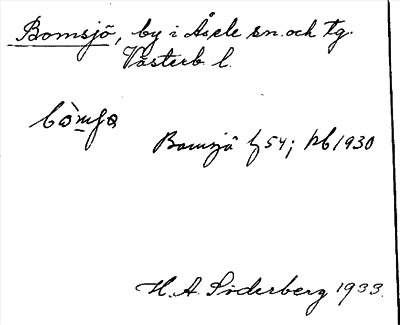 Bomsjö, by i Åsele sn. och tg.
Västerb. l.
Bomsjö 54; 1930
H. A. Söderberg 1933.